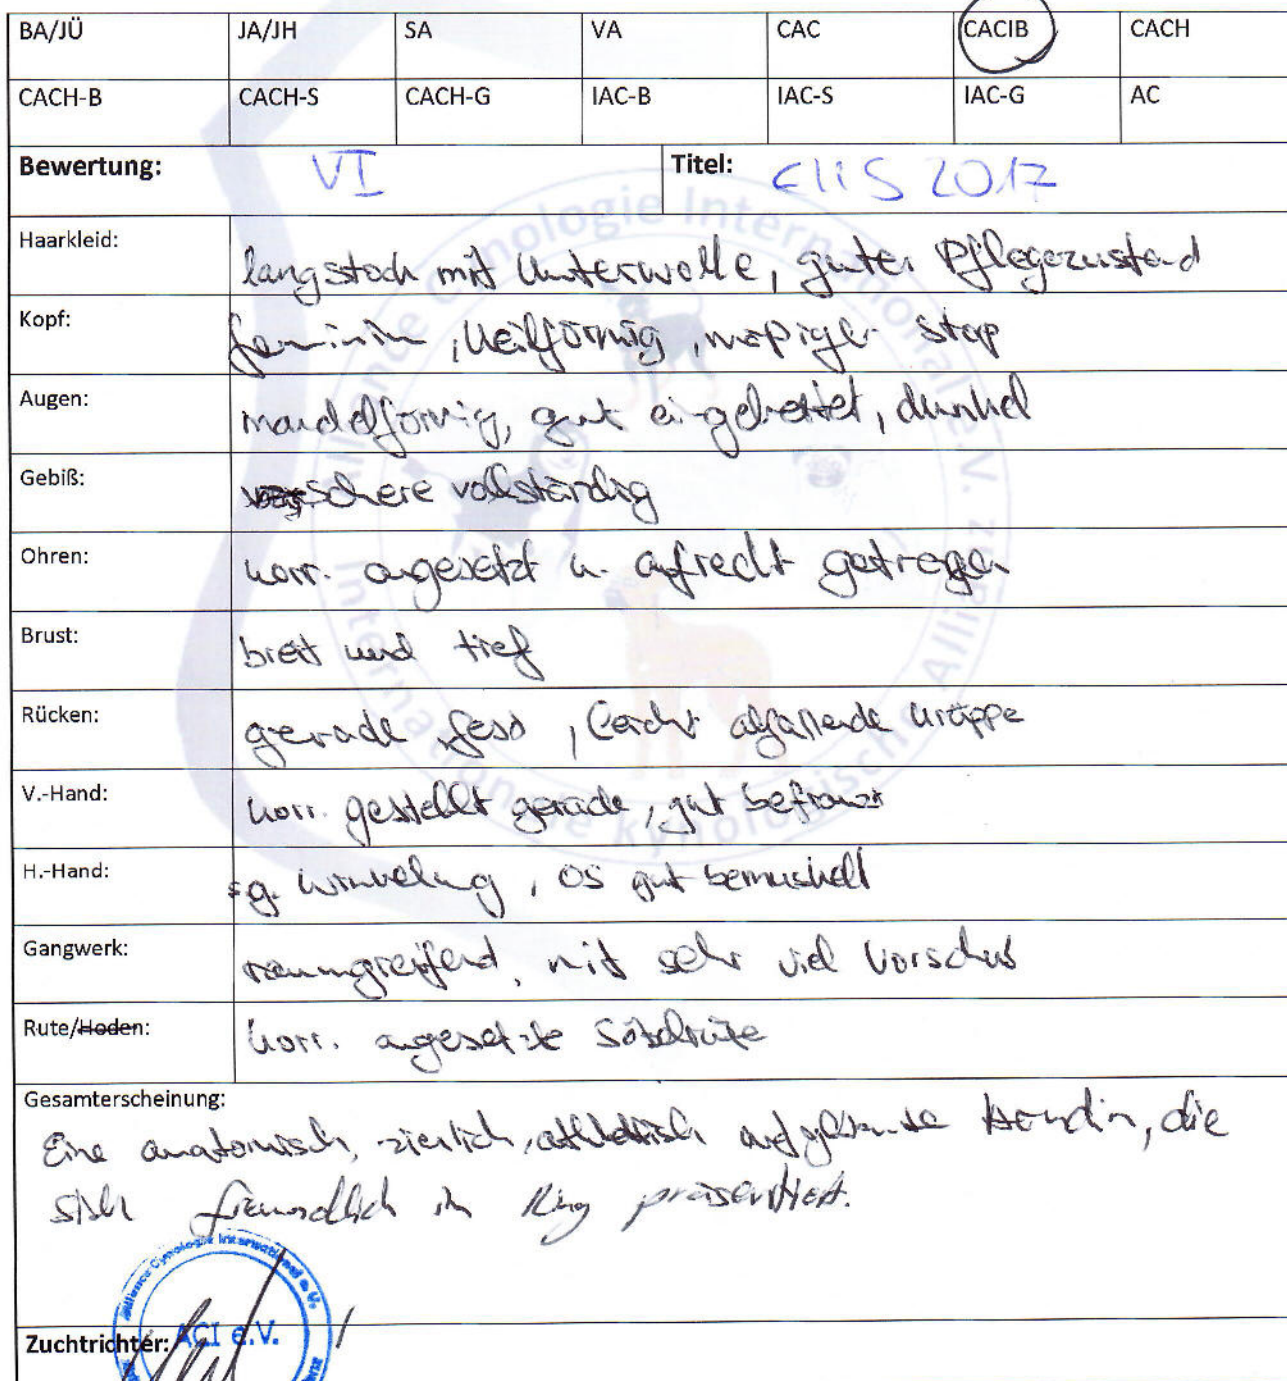 BA/JÜ JA/JH SA VA CAC CACIB CACH
CACH-B CACH-S CACH-G IAC-B IAC-S IAC-G AC
Bewertung: VI Titel: 2017
Haarkleid: langstock mit Unterwolle, guter Pflegezustand
Kopf: feminin, keilförmig, mäßiger Stop
Augen: mandelförmig, gut eingebettet, dunkel
Gebiß: Schere vollständig
Ohren: korr. angesetzt u. aufrecht getragen
Brust: breit und tief
Rücken: gerade, fest, leicht abfallende Kruppe
V.-Hand: korr. gestellt gerade, gut befranst
H.-Hand: s.g. Winkelung, OS gut bemuskelt
Gangwerk: raumgreifend, mit sehr viel Vorschub
Rute/Hoden: korr. angesetzte Säbelrute
Gesamterscheinung:
Eine anatomisch, zierlich, athletisch Hündin, die
sich freundlich im Ring präsentiert.
Alliance Cynologie International e.V.
ACI e.V.
Zuchtrichter:
Alliance Cynologie Internationale e.V.
Internationale Kynologische Allianz